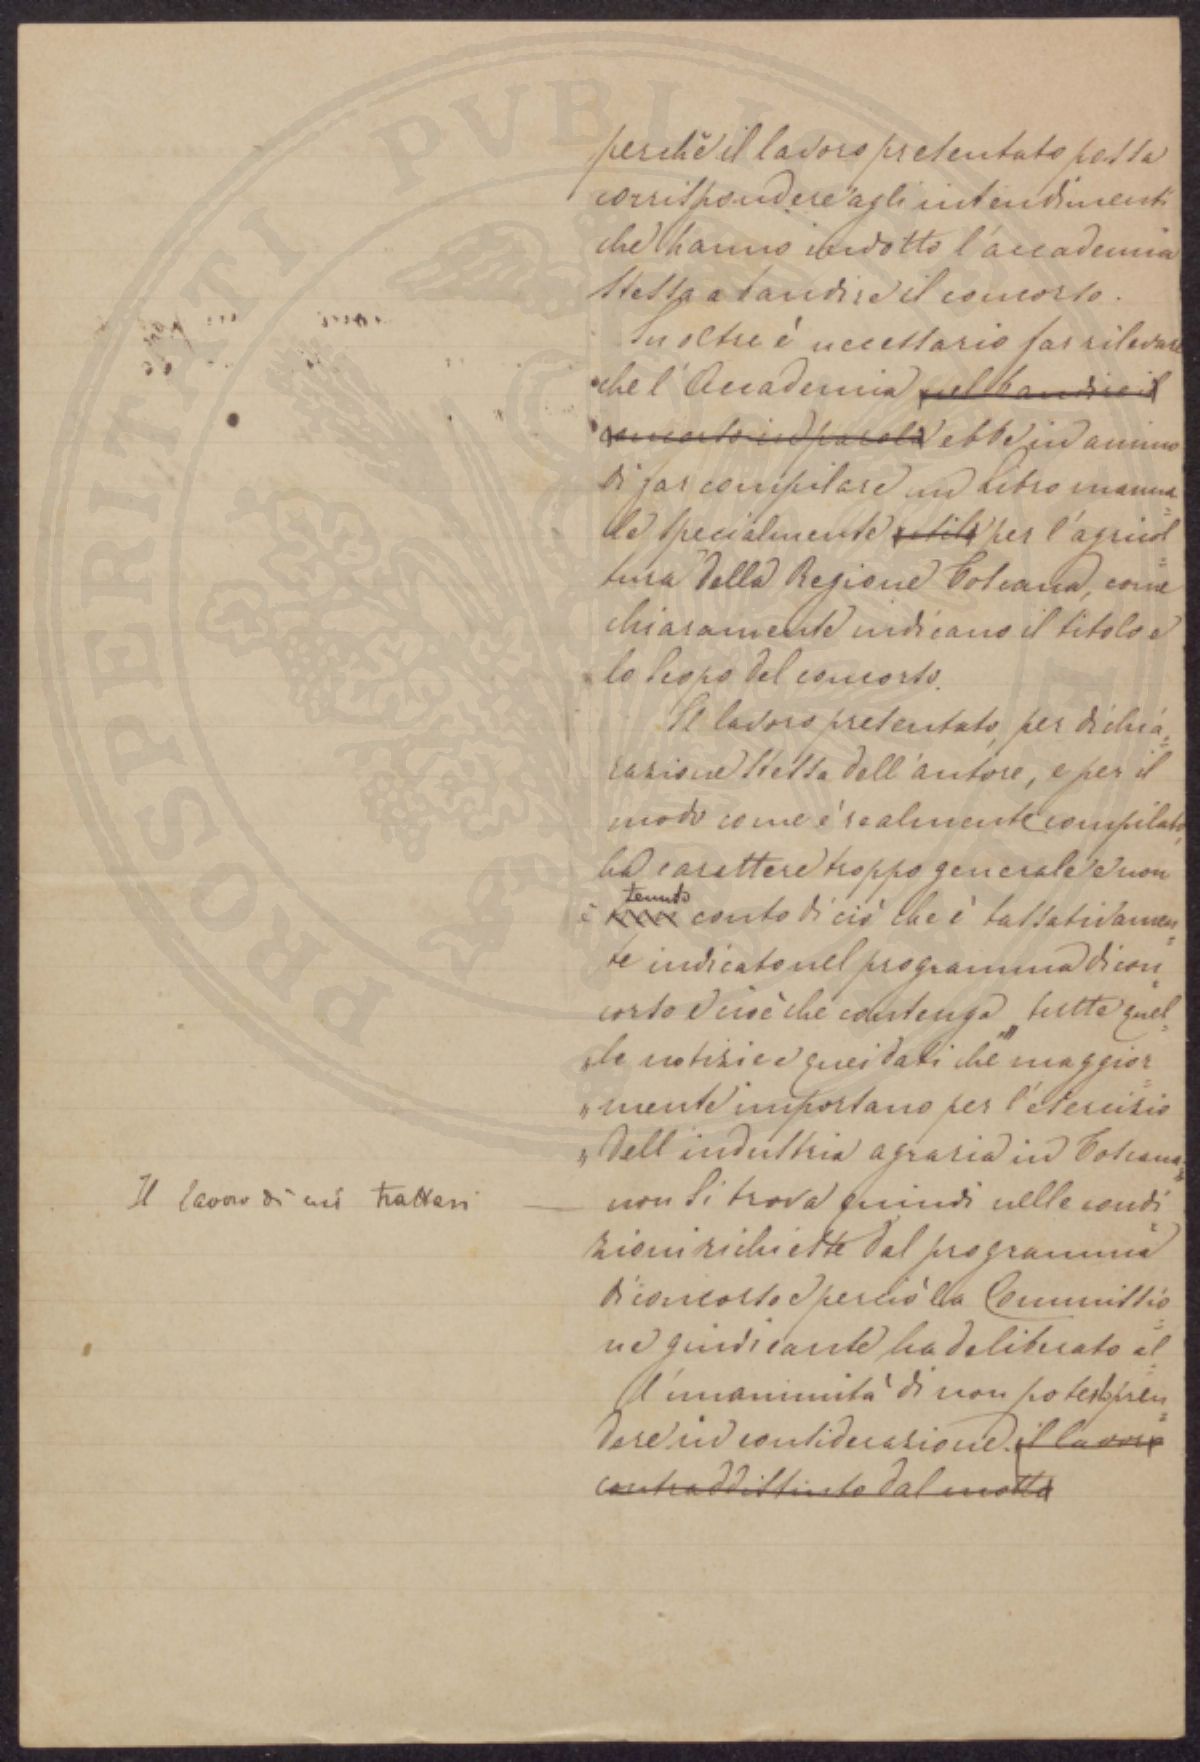 perchè il lavoro presentato possa
corrispondere agli intendimenti
che hanno indotto l'accademia
stessa a bandire il concorso.
Inoltre è necessario far rilevare
che l'Accademia nel bandire il
concorso in parola ebbe in animo
di far compilare un libro manua=
le specialmente utile per l'agricol=
tura della Regione Toscana, come
chiaramente indicano il titolo e
lo scopo del concorso.
Il lavoro presentato, per dichia=
razione stessa dell'autore, e per il
modo come è realmente compilato,
ha carattere troppo generale e non
tenuto
è conto di ciò che è tassativamen=
te indicato nel programma di con=
corso e cioè che contenga „tutte quel=
„le notizie e quei dati che maggior=
„mente importano per l'esercizio
„dell'industria agraria in Toscana„
Il lavoro di cui trattasi — non si trova quindi nelle condi=
zioni richieste dal programma
di concorso e perciò la Commissio=
ne giudicante ha deliberato al=
l'unanimità di non poterlo pren=
dere in considerazione. il lavoro
contraddistinto dal motto
PROSPERITATI PVBLICAE